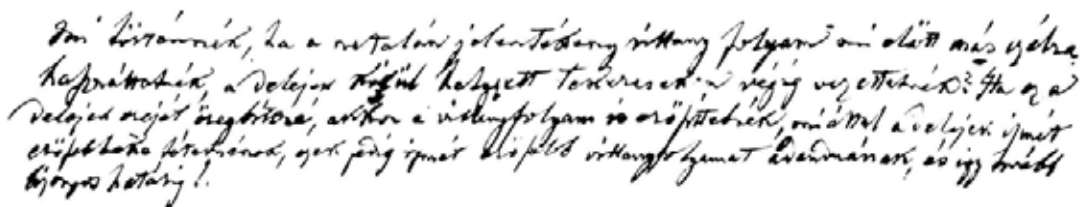 Mi történnék, ha a netalán jelentékeny villany folyam mi előtt más czélra
használtatnék, a delejek körül helyzett tekercseken végig vezettetnék? Ha ez a
delejek erejét öregbítené, akkor a villanyfolyam is erősíttetnék, miáltal a delejek ismét
erősebbekké tétetnének, ezek pedig ismét erősebb villanyfolyamat adnának, és így tovább
bizonyos határig!.